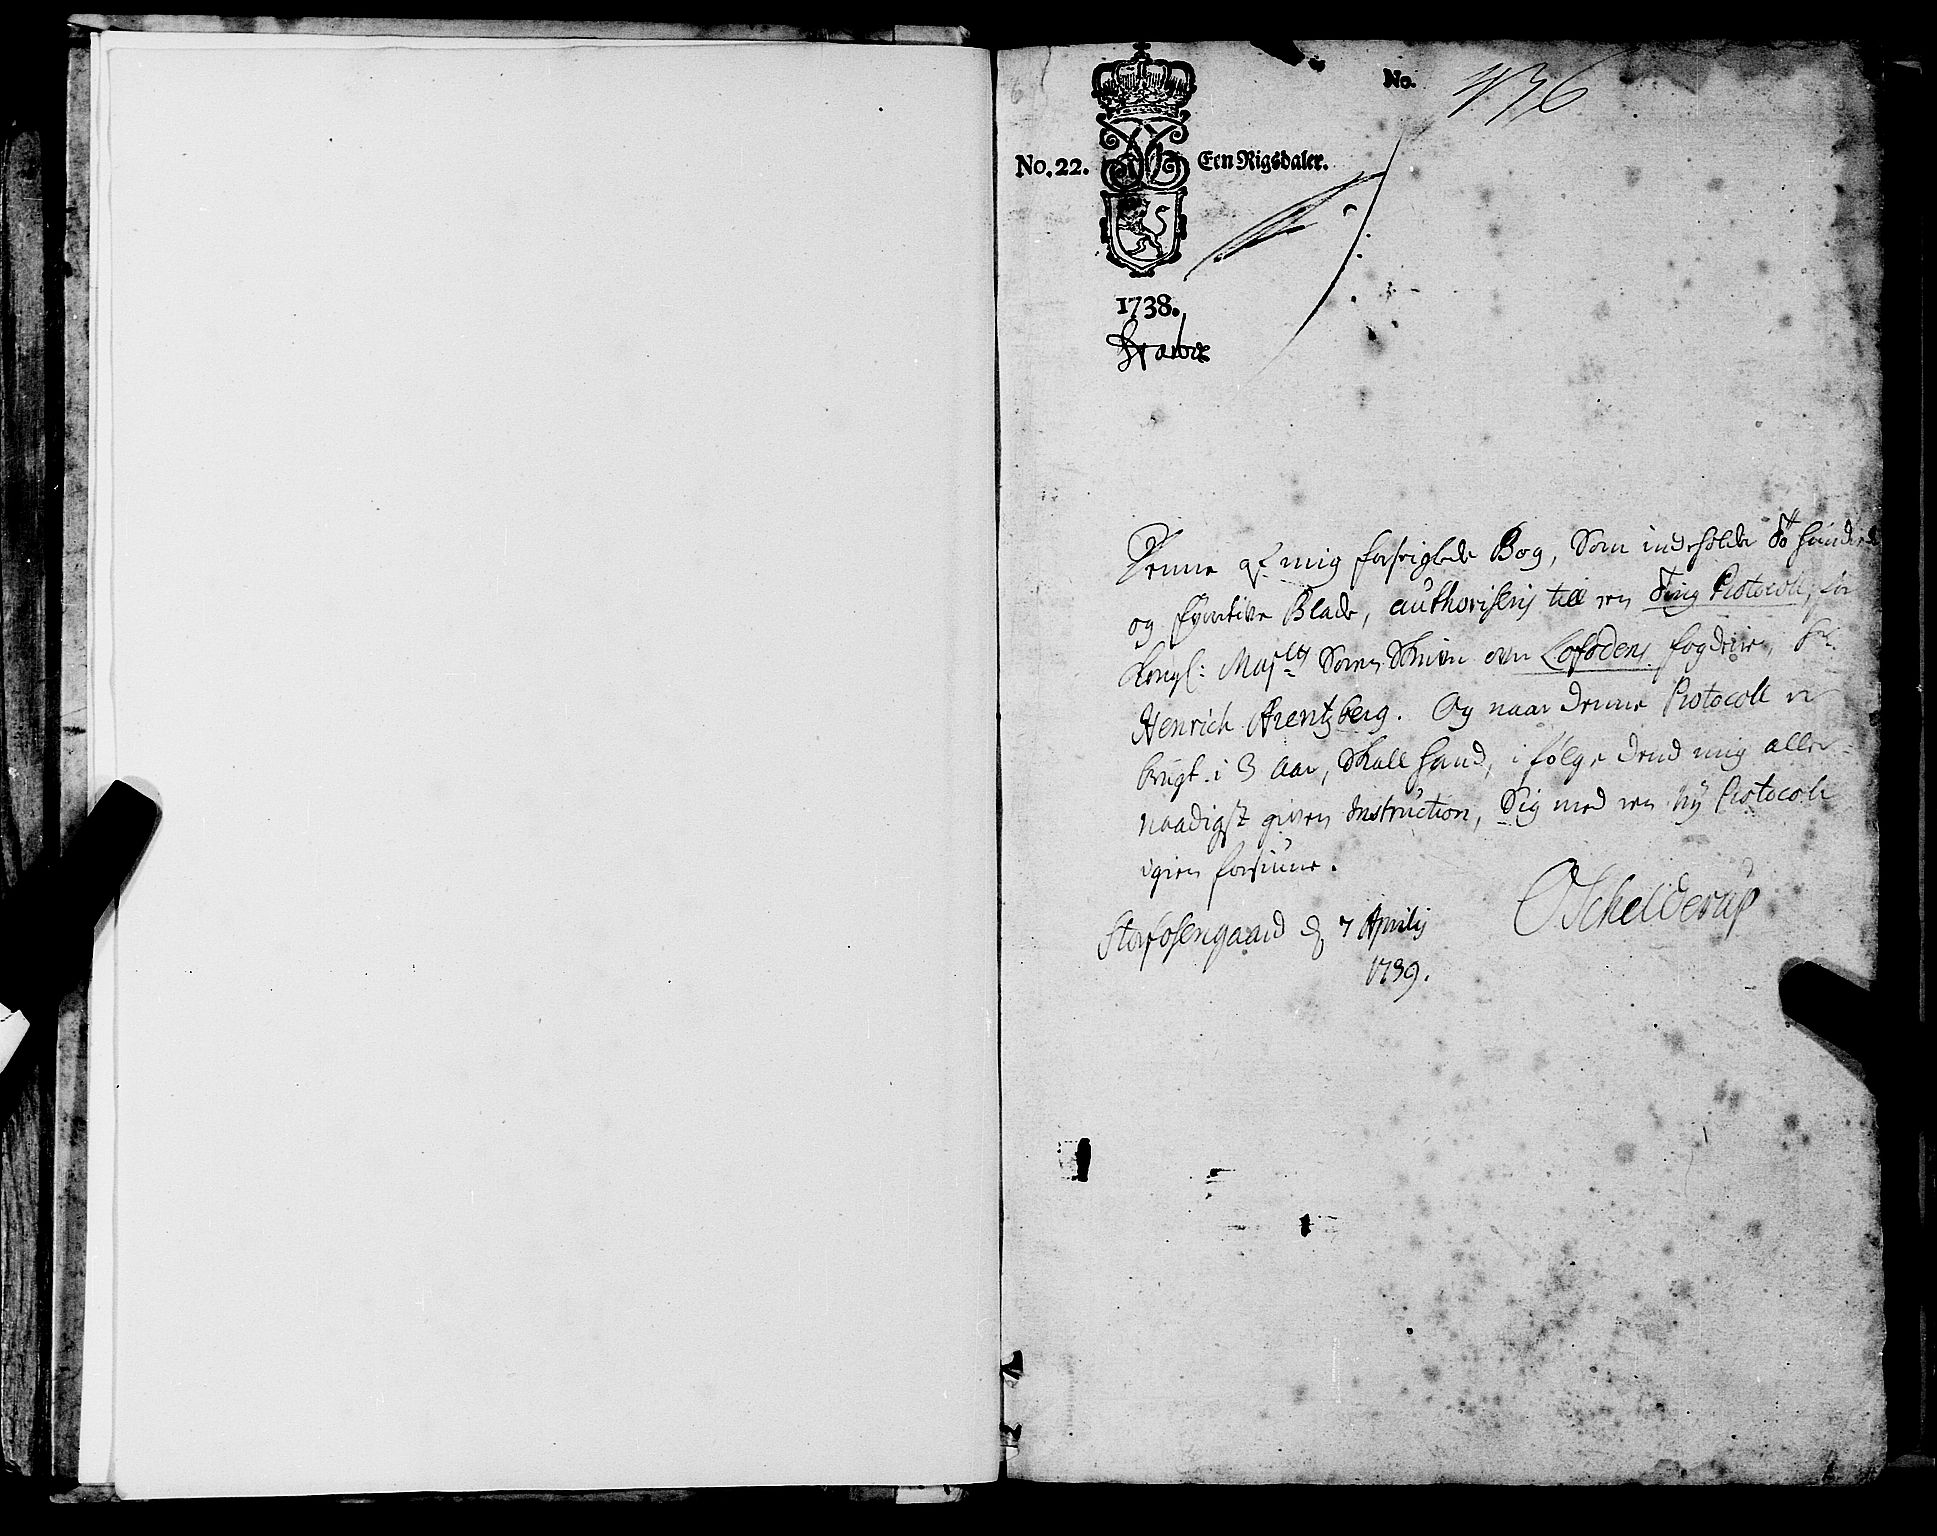 No. 436
No. 22. Een Rigsdaler.
1738.
Denne af mig forseiglede Bog, Som indeholder To hundrede
og Blade, authoriseris till een Ting Protocoll, for
Kongl: Majts Soren Skriver over Lofodens fogderie, Sr.
Henrich Arentzberg. Og naar denne Protocoll er
brugt i 3 Aar, Skall hand, i følge dend mig aller=
naadigst given Instruction, Sig med een Ny Protocoll
igien forsiune.
Storfosengaard d 7 Aprilis
1739.
OSchelderup